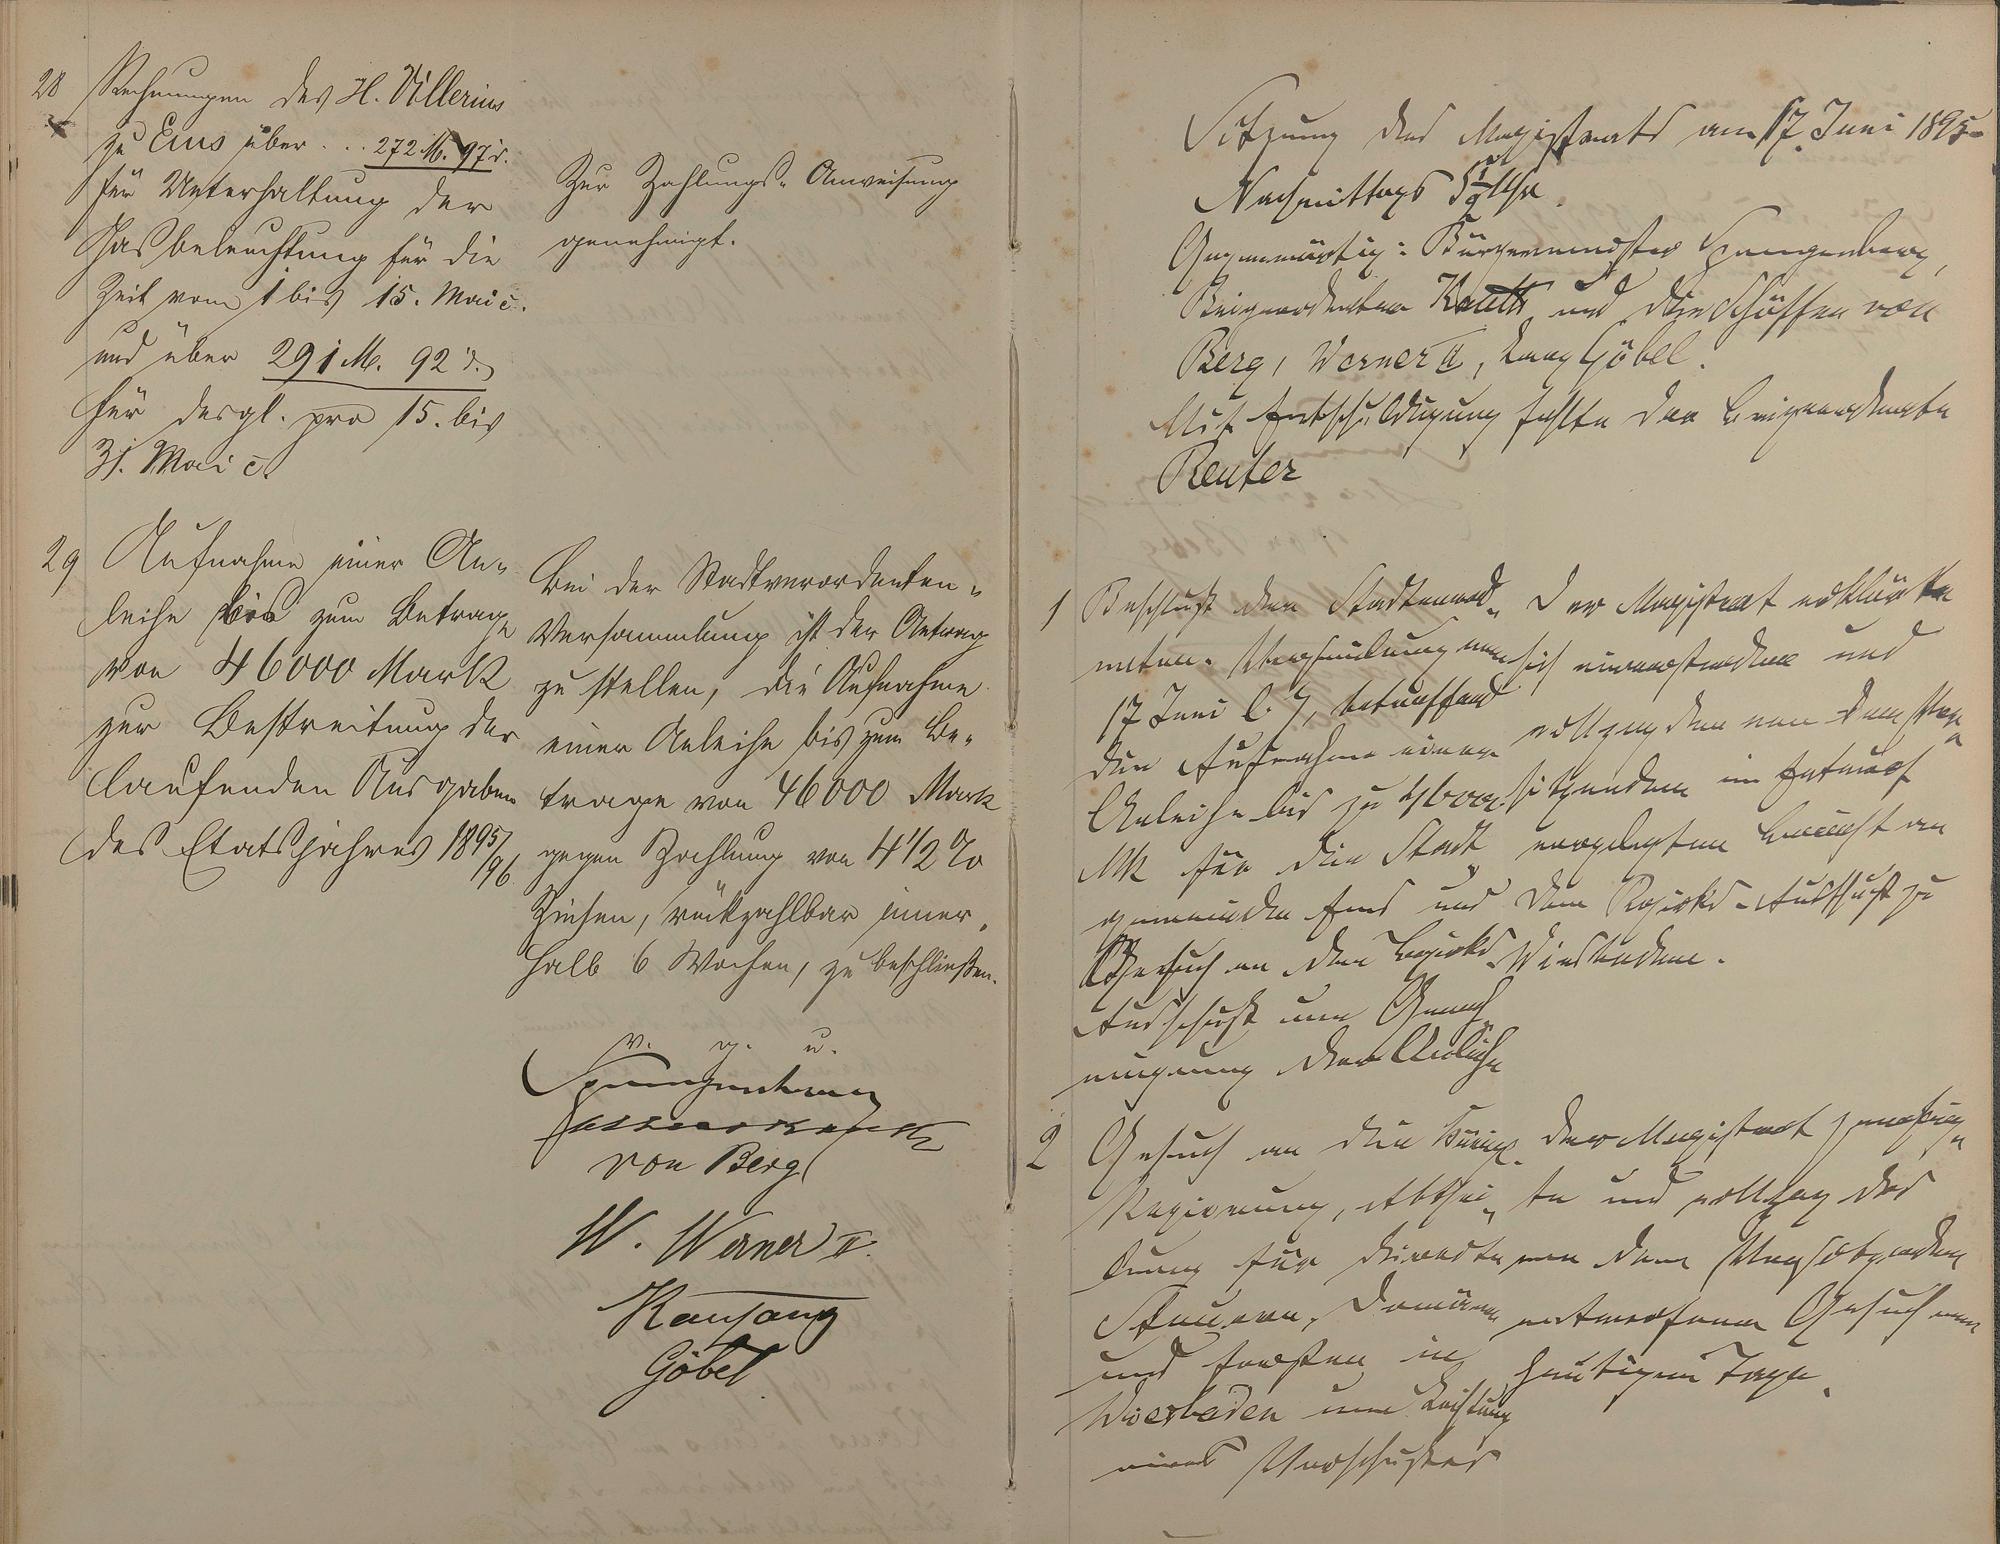 28 Rechnungen des H. Villerius
zu Ems über . . . 272 M. 97 d.
für Unterhaltung der
Gasbeleuchtung für die
Zeit vom 1 bis 15. Mai c.
und über 291 M. 92 d.
für desgl. pro 15. bis
31. Mai c.
Zur Zahlungs-Anweisung
genehmigt.
29 Aufnahme einer An-
leihe bis zum Betrage
von 46000 Mark
zur Bestreitung der
laufenden Ausgaben
des Etatsjahres 1895/
/96
Bei der Stadtverordneten-
Versammlung ist der Antrag
zu stellen, die Aufnahme
einer Anleihe bis zum Be-
trage von 46000 Mark
gegen Zahlung von 4 1/2 %
Zinsen, rückzahlbar inner-
halb 6 Wochen, zu beschließen.
v. g. u.
Spangenberg
von Berg
W. Werner II.
Göbel
Sitzung des Magistrats am 17. Juni 1895
Nachmittags 5 1/2 Uhr.
Gegenwärtig: Bürgermeister Spangenberg,
Beigeordneter und die Schöffen von
Berg, Werner II, Lang Göbel.
Mit Entschuldigung fehlte der Beigeordnete
Reuter
1 Beschluß der Stadtverord-
neten-Versammlung vom
17 Juni l. J., betreffend
die Aufnahme einer
Anleihe bis zu 46000
Mk für die Stadt-
gemeinde Ems und
Gesuch an den Bezirks-
Ausschuß um Geneh-
migung der Anleihe
Der Magistrat erklärte
sich einverstanden und
vollzog den von dem Vor-
sitzenden im Entwurf
vorgelegten Bericht an
den Bezirks-Ausschuß zu
Wiesbaden.
2 Gesuch an die Königl.
Regierung, Abthei-
lung für directe
Steuern, Domänen
und Forsten in
Wiesbaden um Leistung
eines Vorschusses
Der Magistrat genehmig-
te und vollzog das
von dem Vorsitzenden
entworfene Gesuch vom
heutigen Tage.